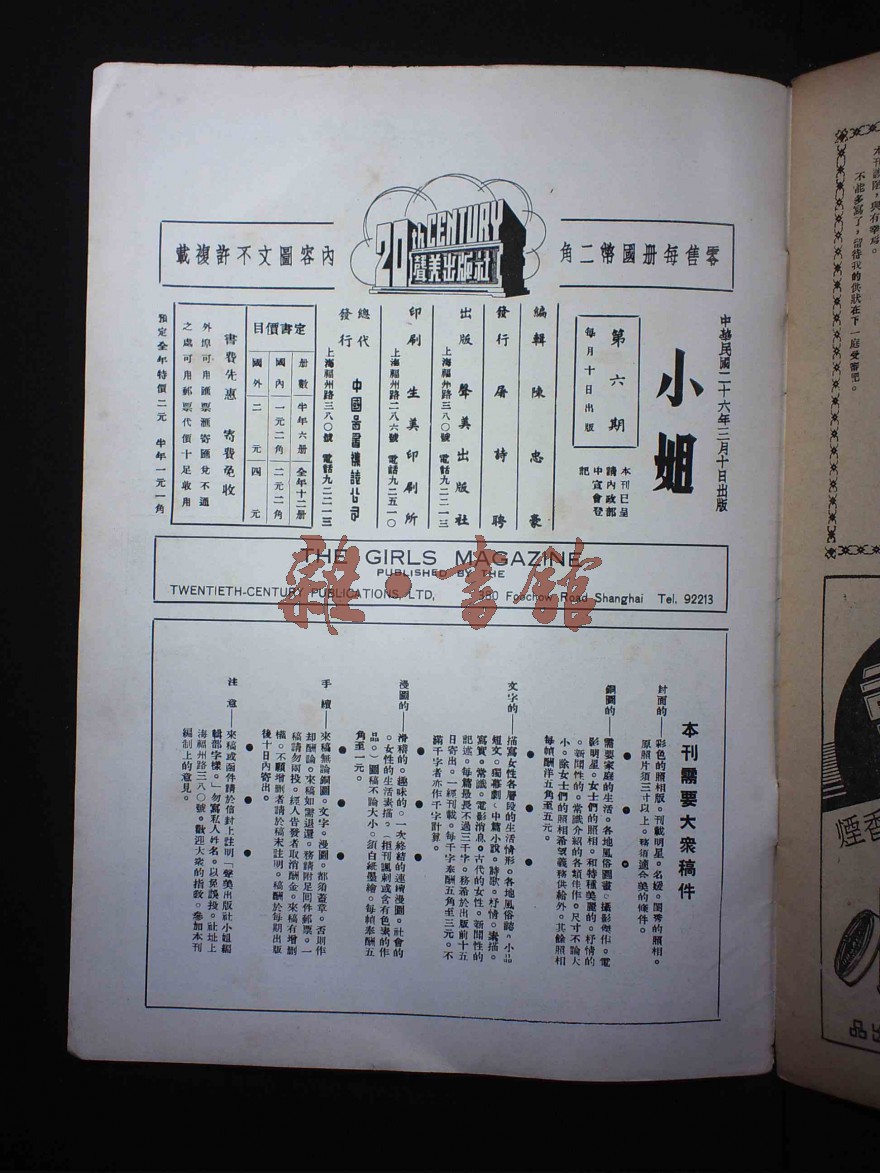 零售每册國幣二角
20th CENTURY
聲美出版社
內容圖文不許複載
中華民國二十六年三月十日出版
小姐
第六期
每月十日出版
本刊已呈
請內政部
中宣會登
記
編輯 陳忠豪
發行 屠詩聘
出版 聲美出版社
上海福州路三八〇號 電話九二二一三
印刷 生美印刷所
上海福州路二八六號 電話九二五一〇
總代
發行
中國圖書雜誌公司
上海福州路三八〇號 電話九二二一三
定書價目
册數 半年六册 全年十二册
國內 一元二角 二元二角
國外 二元 四元
書費先惠 寄費免收
外埠可用匯票匯寄匯兌不通
之處可用郵票代價十足收用
預定全年特價二元 半年一元一角
THE GIRLS MAGAZINE
PUBLISHED BY THE
TWENTIETH-CENTURY PUBLICATIONS, LTD, 380 Foochow Road Shanghai Tel. 92213
雜·書館
本刊需要大衆稿件
封面的——彩色的照相版。刊載明星。名媛。閨秀的照相。
原照片須三寸以上。務須適合美的條件。
銅圖的——需要家庭的生活。各地風俗圖畫。攝影傑作。電
影明星。女士們的照相。和特種美麗的。抒情的
。新聞性的。常識介紹的各類佳作。尺寸不論大
小。除女士們的照相希望義務供給外。其餘照相
每幀酬洋五角至五元。
文字的——描寫女性各層段的生活情形。各地風俗誌。小品
短文。獨幕劇。中篇小說。詩歌。抒情。素描。
寫實。常識。電影消息。古代的女性。新聞性的
記述。每篇最長不過三千字。務希於出版前十五
日寄出。一經刊載。每千字奉酬五角至三元。不
滿千字者亦作千字計算。
漫圖的——滑稽的。趣味的。一次終結的連續漫圖。社會的
。女性的生活素描。（拒刊諷刺或含有色素的作
品。）圖稿不論大小。須白紙墨繪。每幀奉酬五
角至一元。
手續——來稿無論銅圖。文字。漫圖。都須蓋章。否則作
却酬論。來稿如需退還。務請附足回件郵票。一
稿請勿兩投。經人告發者取消酬金。來稿有增删
權。不願增删者請於稿末註明。稿酬於每期出版
後十日內寄出。
注意——來稿或函件請於信封上註明「聲美出版社小姐編
輯部字樣。」勿寫私人姓名。以免誤投。社址上
海福州路三八〇號。歡迎大衆的指教。參加本刊
編制上的意見。
不能多寫了，留待我的供狀在下一庭受審吧。
香煙
出品